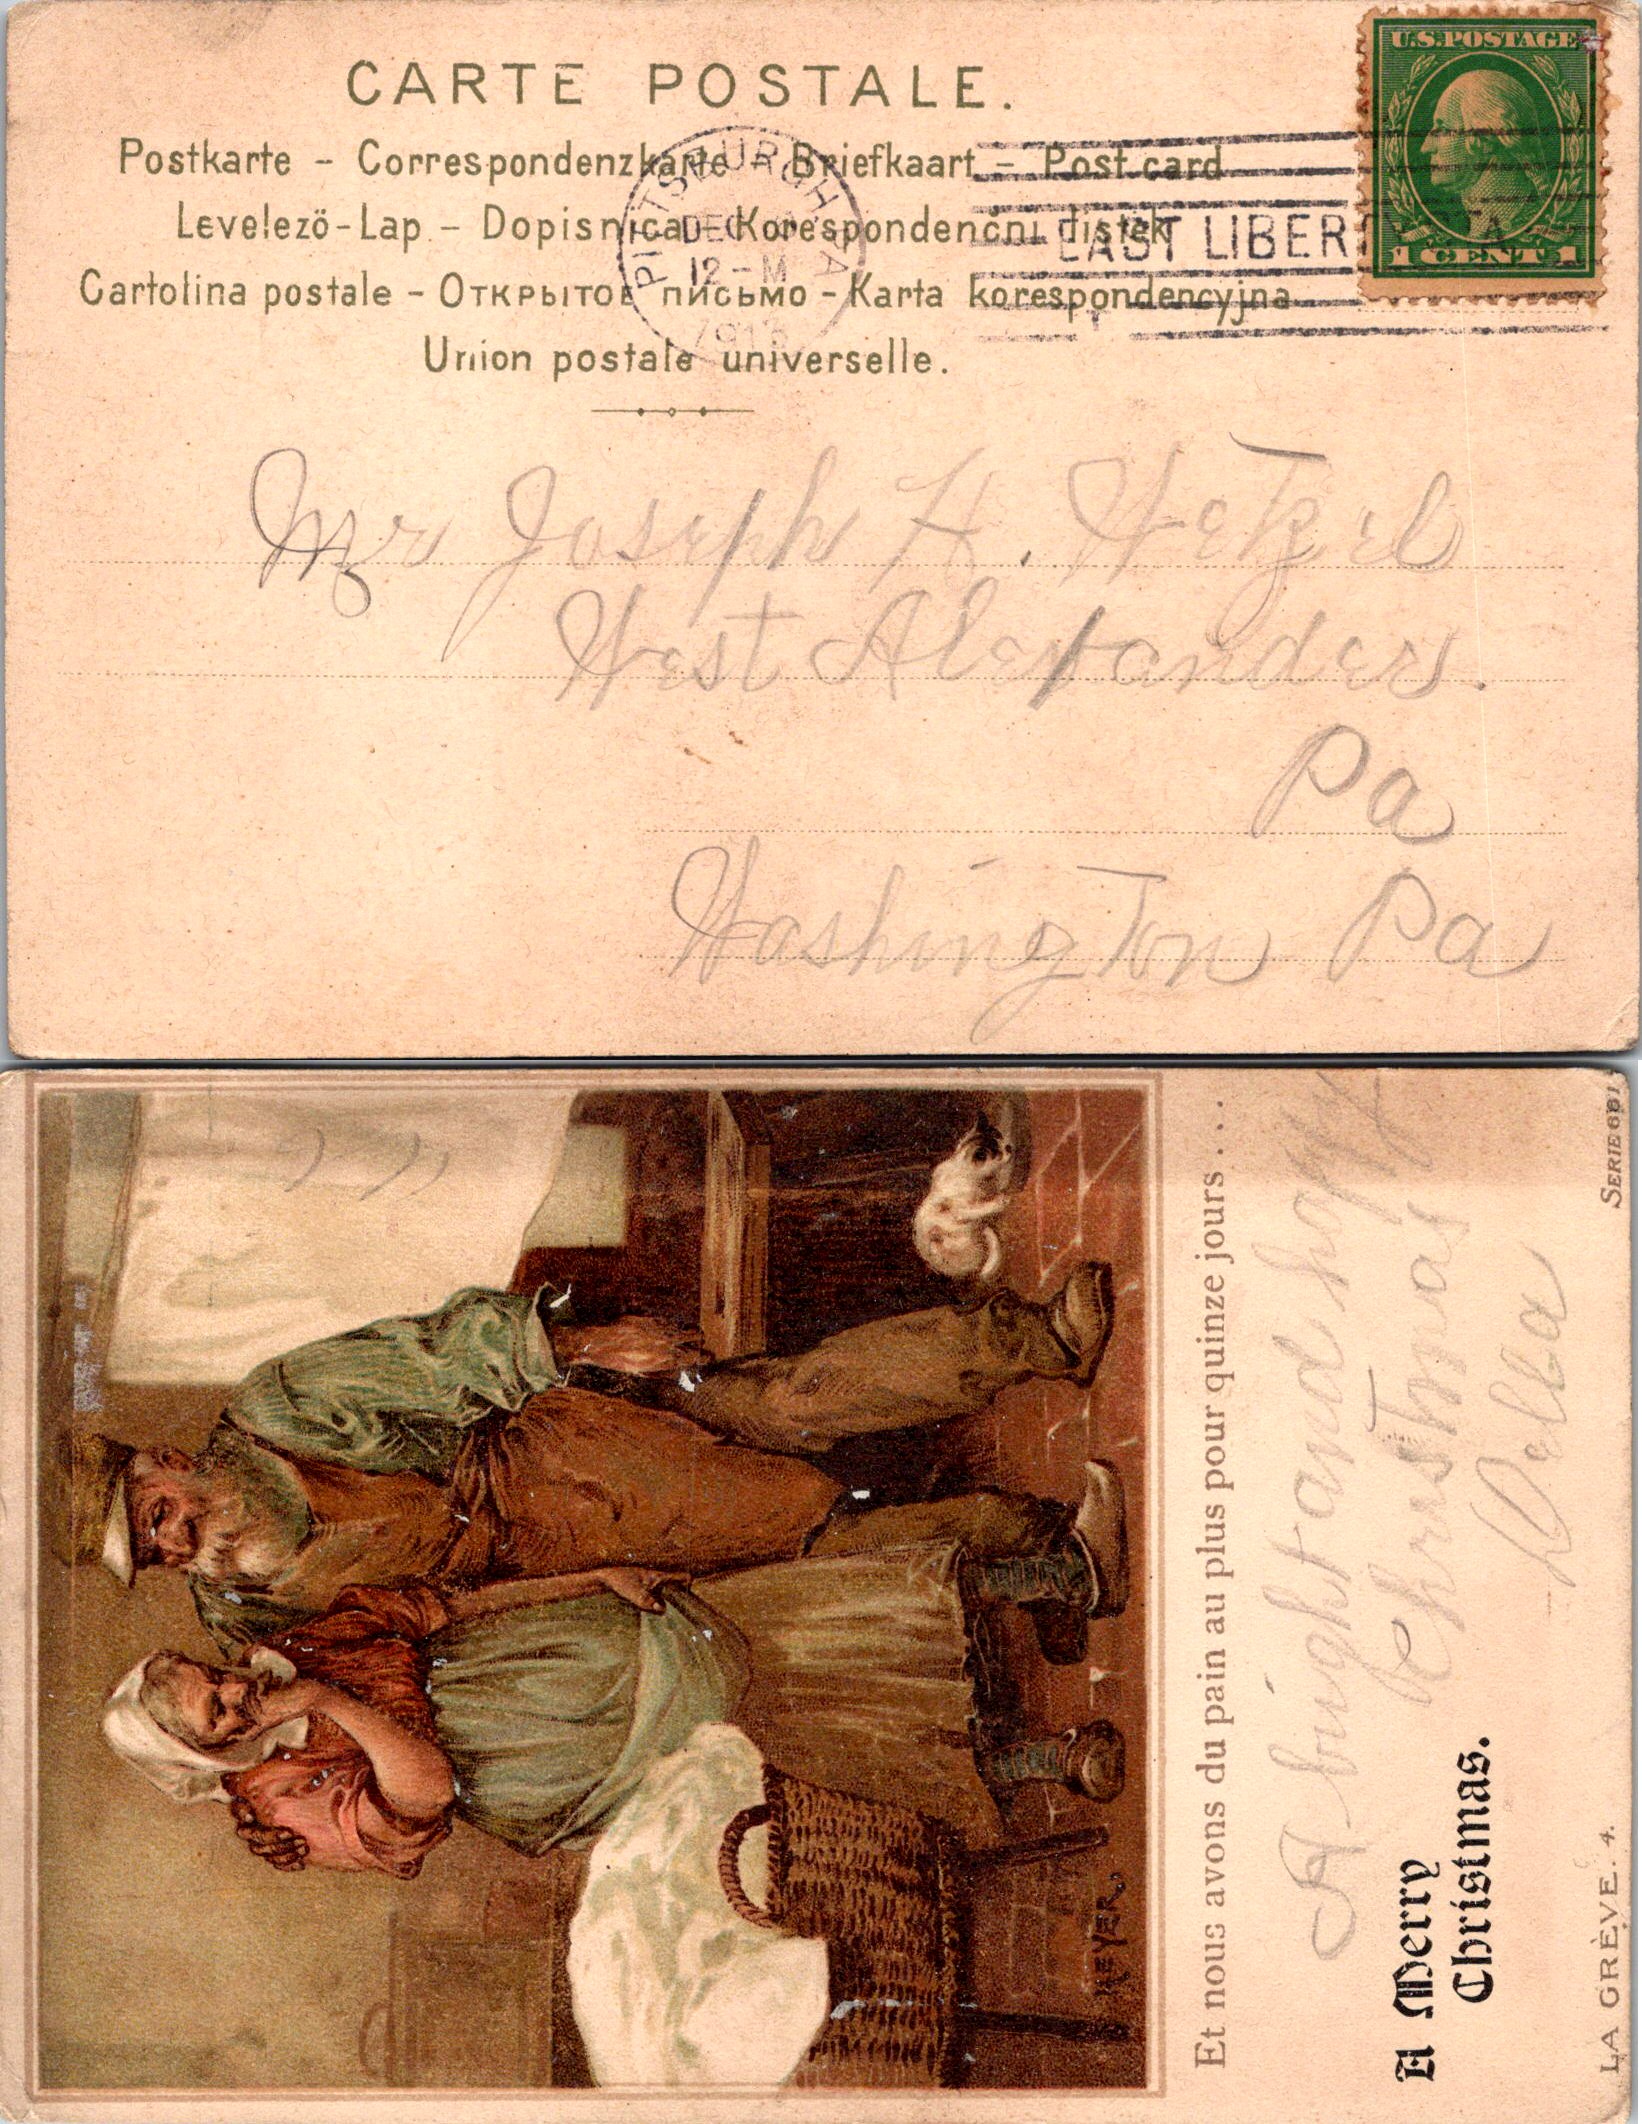 CARTE POSTALE.
Postkarte - Correspondenzkarte - Briefkaart - Post card
Levelezö-Lap - Dopisnica - Korespondenčni listek
Cartolina postale - Открытое письмо - Karta korespondencyjna
Union postale universelle.
U.S. POSTAGE
1 CENT 1
PITTSBURGH, PA
DEC
12-M
1913
EAST LIBERTY STA.
Mr Joseph H. Wetzel
West Alexander.
Pa
Washington Pa
Et nous avons du pain au plus pour quinze jours . . .
A bright and happy
Christmas
Della
A Merry
Christmas.
LA GRÈVE. 4.
SERIE 681
HEYER.